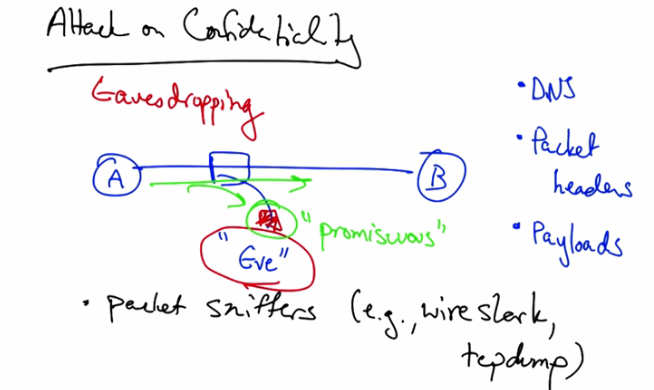 Attack on Confidentiality
Eavesdropping
• DNS
A
B
• Packet
headers
"promiscuous"
• Payloads
"Eve"
• packet sniffers (e.g., wireshark,
tcpdump)